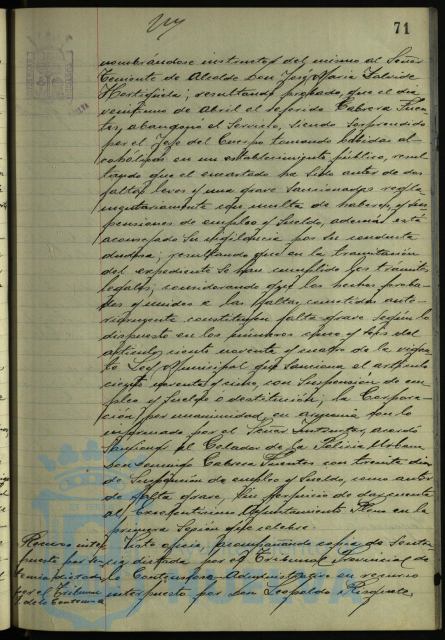 71
nombrándose instructor del mismo al Señor
Teniente de Alcalde Don José María
resultando probado, que el día
veintiuno de Abril el referido Cabrera Fuen-
tes, abandonó el Servicio, siendo sorprendido
por el Jefe del Cuerpo tomando bebidas al-
cohólicas en un establecimiento público, resul-
tando que el encartado ha sido autor de dos
faltas leves y una grave sancionadas regla-
mentariamente con multa de haberes, y sus-
pensiones de empleo y sueldo, además está
aconsejado su vigilancia por su conducta
dudosa; resultando que en la tramitación
del expediente se han cumplido los trámites
legales; considerando que los hechos proba-
dos y unidos a las faltas cometidas ante-
riormente constituyen falta grave según lo
dispuesto en los números
artículo ciento noventa y cuatro de la vigen-
te Ley Municipal que sanciona el artículo
ciento noventa y cinco, con suspensión de em-
pleo y sueldo o destitución; la Corpora-
ción por unanimidad, en armonía con lo
informado por el Señor Instructor, acordó
sancionar al Celador de la Policía Urbana
Don Domingo Cabrera Fuentes con treinta días
de suspensión de empleo y sueldo, como autor
de falta grave, sin perjuicio de dar cuenta
al Excelentísimo Ayuntamiento Pleno en la
primera sesión que celebre.
Recurso inter-
puesto por
dictada
por el Tribunal
de lo Contencio
Visto oficio acompañando copia de Senten-
cia dictada por el Tribunal Provincial de
lo Contencioso-Administrativo en recurso
interpuesto por Don Leopoldo